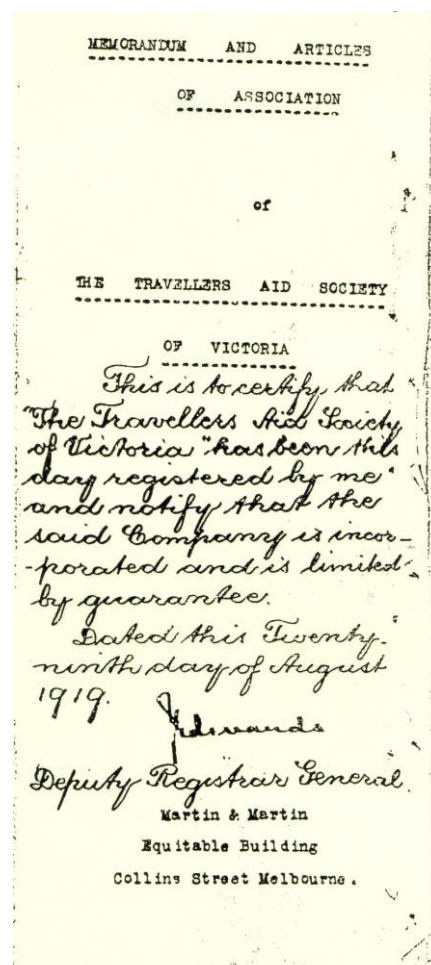 MEMORANDUM AND ARTICLES
OF ASSOCIATION
of
THE TRAVELLERS AID SOCIETY
OF VICTORIA
This is to certify that
"The Travellers Aid Society
of Victoria" has been this
day registered by me
and notify that the
said Company is incor-
-porated and is limited
by guarantee.
Dated this Twenty-
ninth day of August
1919.
Deputy Registrar General.
Martin & Martin
Equitable Building
Collins Street Melbourne.